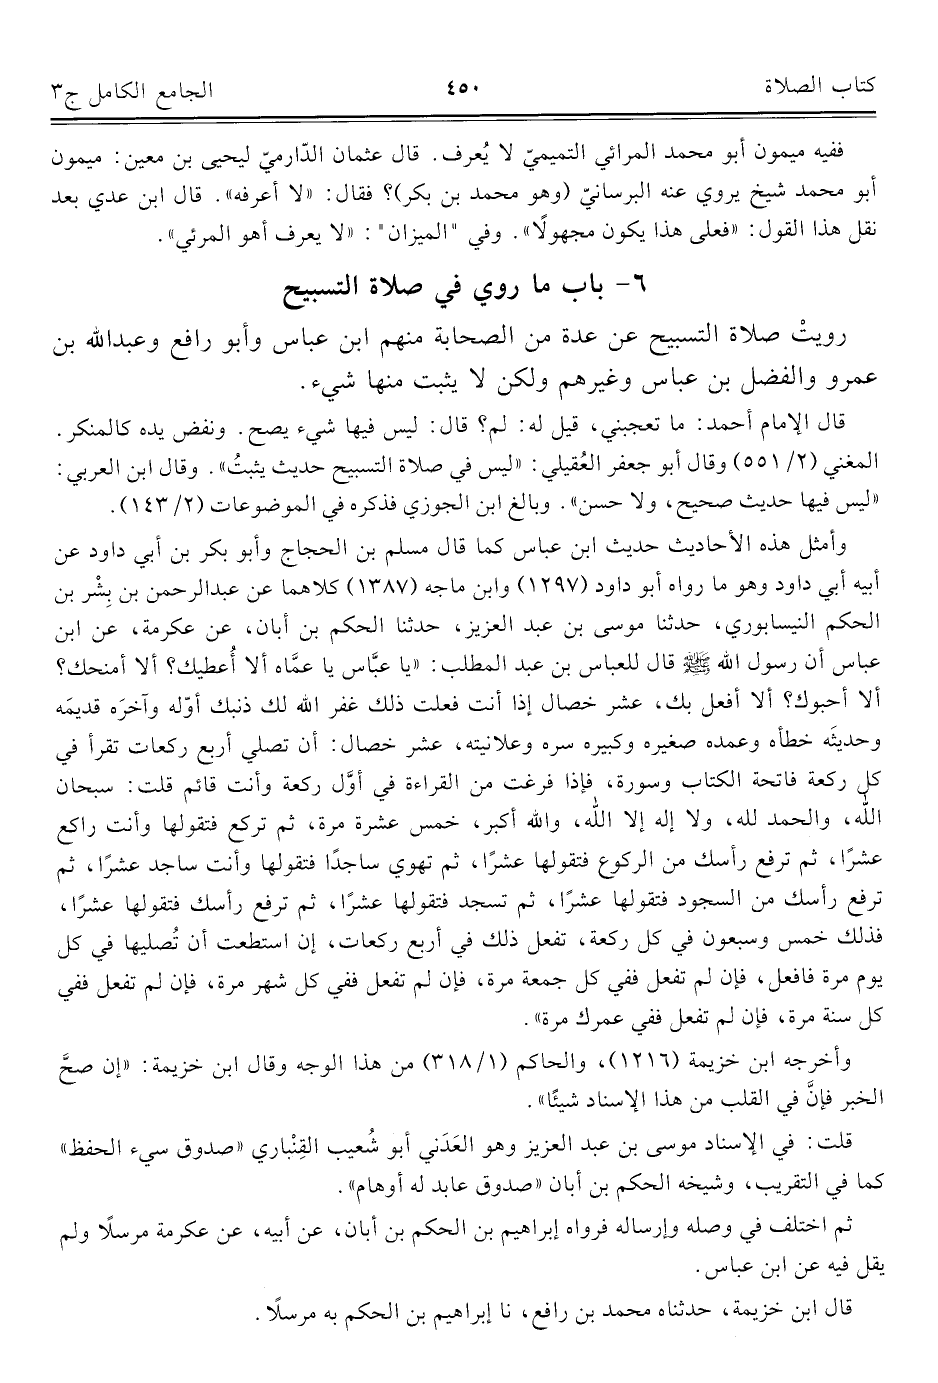 كتاب الصلاة ٤٥٠ الجامع الكامل ج٣
ففيه ميمون أبو محمد المرائي التميميّ لا يُعرف. قال عثمان الدّارميّ ليحيى بن معين: ميمون
أبو محمد شيخ يروي عنه البرسانيّ (وهو محمد بن بكر)؟ فقال: «لا أعرفه». قال ابن عدي بعد
نقل هذا القول: «فعلى هذا يكون مجهولًا». وفي "الميزان": «لا يعرف أهو المرئي».
٦- باب ما روي في صلاة التسبيح
رويتْ صلاة التسبيح عن عدة من الصحابة منهم ابن عباس وأبو رافع وعبدالله بن
عمرو والفضل بن عباس وغيرهم ولكن لا يثبت منها شيء.
قال الإمام أحمد: ما تعجبني، قيل له: لم؟ قال: ليس فيها شيء يصح. ونفض يده كالمنكر.
المغني (٢/ ٥٥١) وقال أبو جعفر العُقيلي: «ليس في صلاة التسبيح حديث يثبتُ». وقال ابن العربي:
«ليس فيها حديث صحيح، ولا حسن». وبالغ ابن الجوزي فذكره في الموضوعات (٢/ ١٤٣).
وأمثل هذه الأحاديث حديث ابن عباس كما قال مسلم بن الحجاج وأبو بكر بن أبي داود عن
أبيه أبي داود وهو ما رواه أبو داود (١٢٩٧) وابن ماجه (١٣٨٧) كلاهما عن عبدالرحمن بن بِشْر بن
الحكم النيسابوري، حدثنا موسى بن عبد العزيز، حدثنا الحكم بن أبان، عن عكرمة، عن ابن
عباس أن رسول الله ﷺ قال للعباس بن عبد المطلب: «يا عبَّاس يا عمَّاه ألا أُعطيك؟ ألا أمنحك؟
ألا أحبوك؟ ألا أفعل بك، عشر خصال إذا أنت فعلت ذلك غفر الله لك ذنبك أوّله وآخرَه قديمَه
وحديثَه خطأه وعمده صغيره وكبيره سره وعلانيته، عشر خصال: أن تصلي أربع ركعات تقرأ في
كل ركعة فاتحة الكتاب وسورة، فإذا فرغت من القراءة في أوَّل ركعة وأنت قائم قلت: سبحان
الله، والحمد لله، ولا إله إلا الله، والله أكبر، خمس عشرة مرة، ثم تركع فتقولها وأنت راكع
عشرًا، ثم ترفع رأسك من الركوع فتقولها عشرًا، ثم تهوي ساجدًا فتقولها وأنت ساجد عشرًا، ثم
ترفع رأسك من السجود فتقولها عشرًا، ثم تسجد فتقولها عشرًا، ثم ترفع رأسك فتقولها عشرًا،
فذلك خمس وسبعون في كل ركعة، تفعل ذلك في أربع ركعات، إن استطعت أن تُصليها في كل
يوم مرة فافعل، فإن لم تفعل ففي كل جمعة مرة، فإن لم تفعل ففي كل شهر مرة، فإن لم تفعل ففي
كل سنة مرة، فإن لم تفعل ففي عمرك مرة».
وأخرجه ابن خزيمة (١٢١٦)، والحاكم (١/ ٣١٨) من هذا الوجه وقال ابن خزيمة: «إن صحَّ
الخبر فإنَّ في القلب من هذا الإسناد شيئًا».
قلت: في الإسناد موسى بن عبد العزيز وهو العَدَني أبو شُعيب القِنْباري «صدوق سيء الحفظ»
كما في التقريب، وشيخه الحكم بن أبان «صدوق عابد له أوهام».
ثم اختلف في وصله وإرساله فرواه إبراهيم بن الحكم بن أبان، عن أبيه، عن عكرمة مرسلًا ولم
يقل فيه عن ابن عباس.
قال ابن خزيمة، حدثناه محمد بن رافع، نا إبراهيم بن الحكم به مرسلًا.